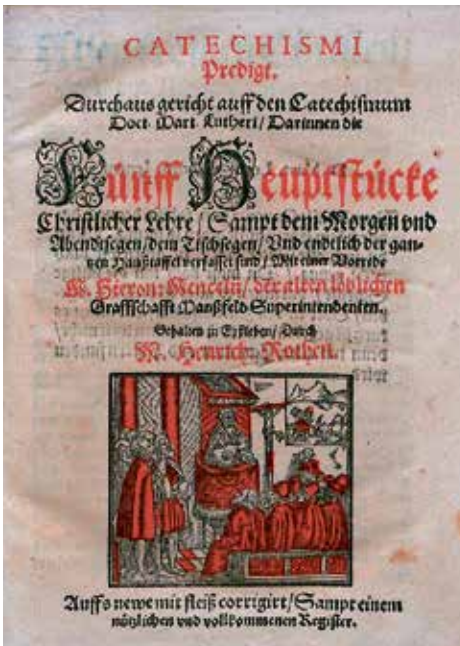 CATECHISMI
Predigt.
Durchaus gericht auff den Catechismum
Doct. Mart. Lutheri / Darinnen die
Fünff Heuptstücke
Christlicher Lehre / Sampt dem Morgen vnd
Abendtsegen / dem Tischsegen / Vnd endtlich der gan-
tzen Haußtaffel verfasset sind / Mit einer Vorrede
M. Hieron: Menceln / der alten löblichen
Graffschafft Manßfeld Superintendenten.
Gehalten zu Eyßleben / Durch
M. Henrich Rothen.
Auffs newe mit fleiß corrigirt / Sampt einem
nützlichen vnd vollkommenen Register.